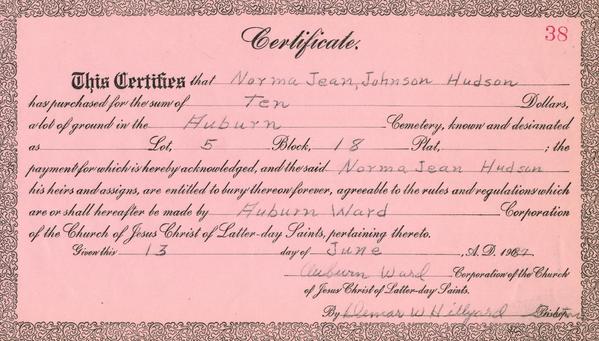 38
Certificate.
This Certifies that Norma Jean, Johnson Hudson
has purchased for the sum of Ten Dollars,
a lot of ground in the Auburn Cemetery, known and designated
as Lot, 5 Block, 18 Plat, ; the
payment for which is hereby acknowledged, and the said Norma Jean Hudson
his heirs and assigns, are entitled to bury thereon forever, agreeable to the rules and regulations which
are or shall hereafter be made by Auburn Ward Corporation
of the Church of Jesus Christ of Latter-day Saints, pertaining thereto.
Given this 13 day of June, A. D. 19
Auburn Ward Corporation of the Church
of Jesus Christ of Latter-day Saints.
By Demar W Hillyard Bishop